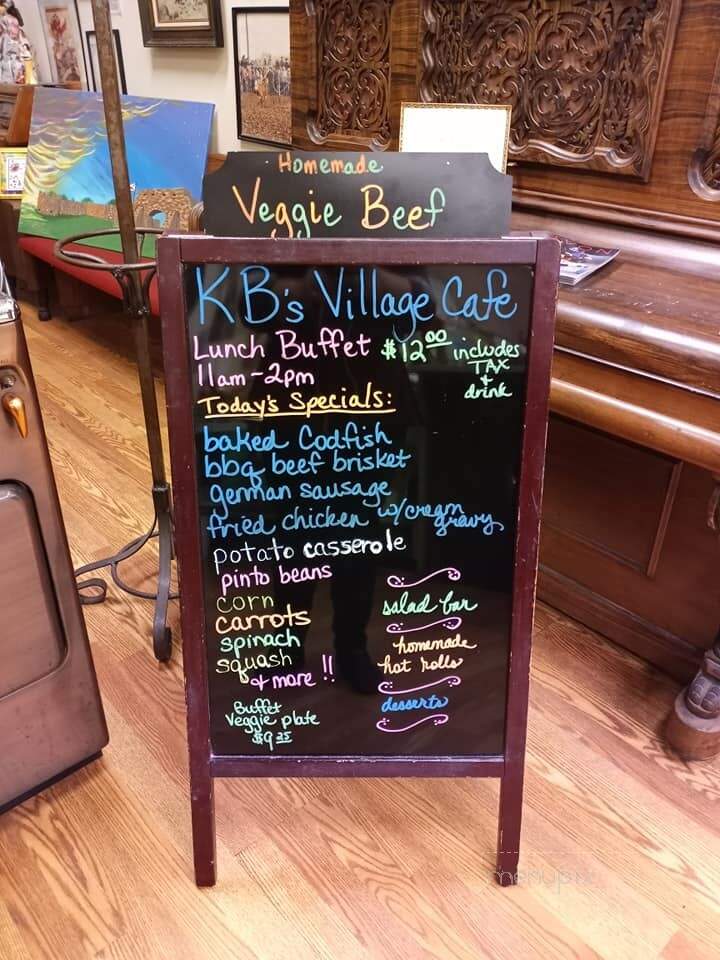 Homemade
Veggie Beef
KB's Village Cafe
Lunch Buffet $12.00 includes
11am-2pm TAX
+
drink
Today's Specials:
baked Codfish
bbq beef brisket
german sausage
fried chicken w/cream
gravy
potato casserole
pinto beans
corn
carrots
spinach
squash
+ more !!
salad bar
homemade
hot rolls
desserts
Buffet
Veggie plate
$9.25
menupix